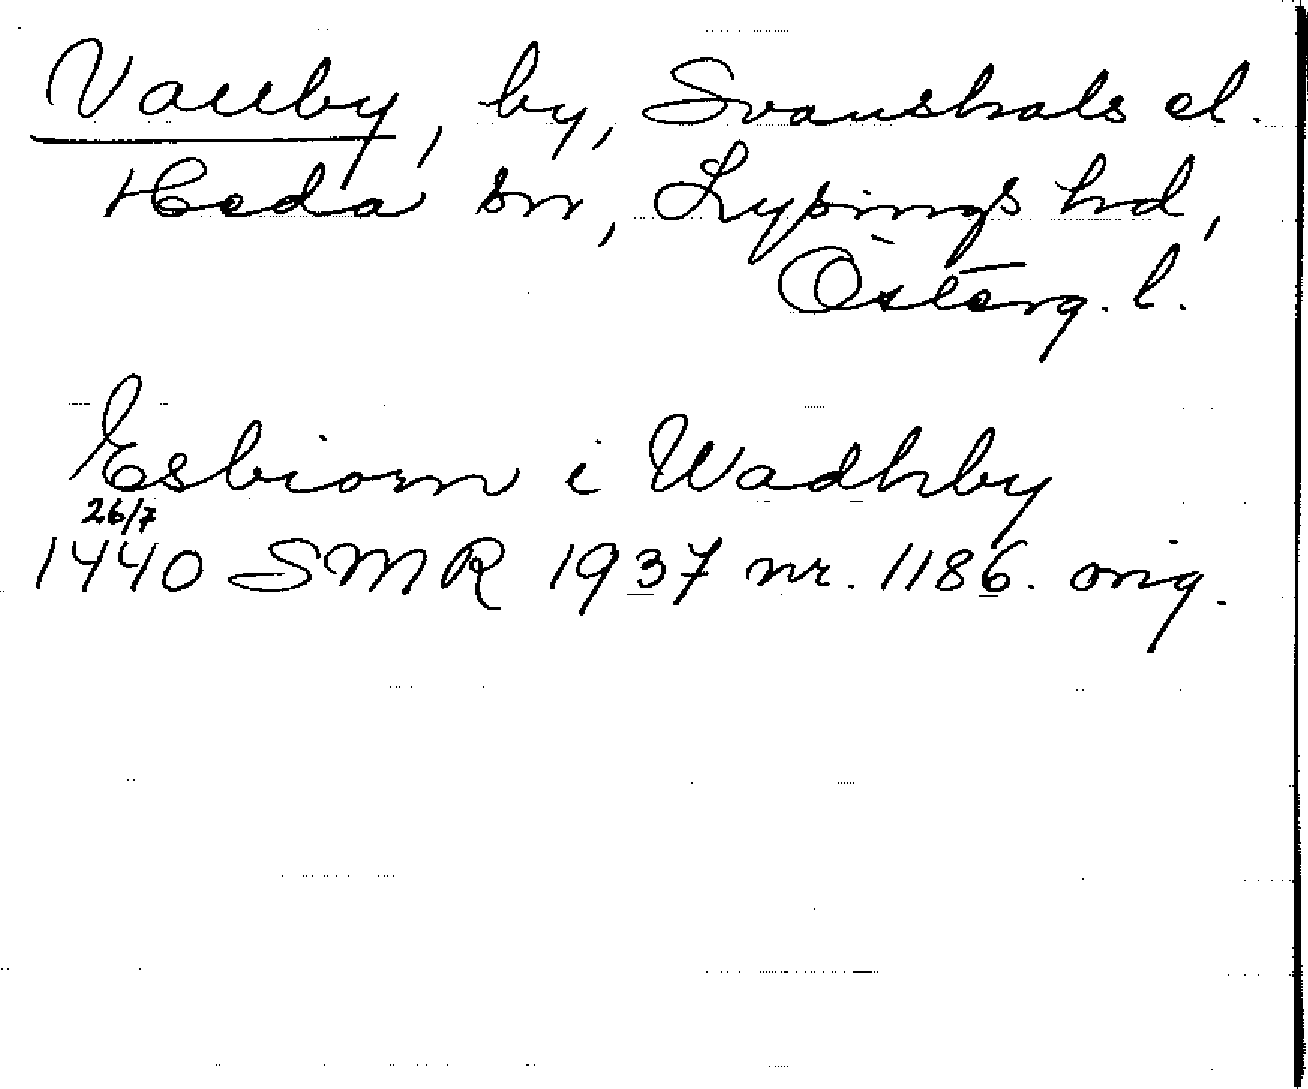 Valby, by, Svanshals el.
Heda sn, Lysings hd,
Österg. l.
Esbiorn i Wadhby
26/7
1440 SMR 1937 nr. 1186. orig.